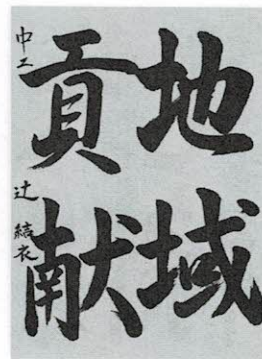 地域
貢献
中工 辻 結衣